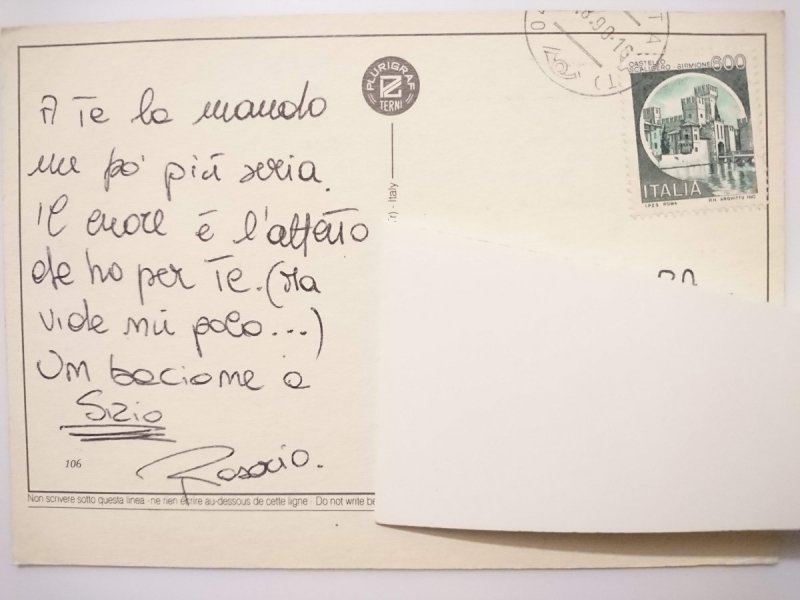 A Te la mando
un po' più seria.
Il cuore è l'affetto
che ho per Te. (Ma
vide nu poco...)
Un bacione a
Sizio
Rosario.
106
Non scrivere sotto questa linea - ne rien écrire au-dessous de cette ligne - Do not write be
PLURIGRAF
TERNI
- Italy
CASTELLO
SCALIGERO - SIRMIONE
600
ITALIA
I.P.Z.S. ROMA
.8.90-16